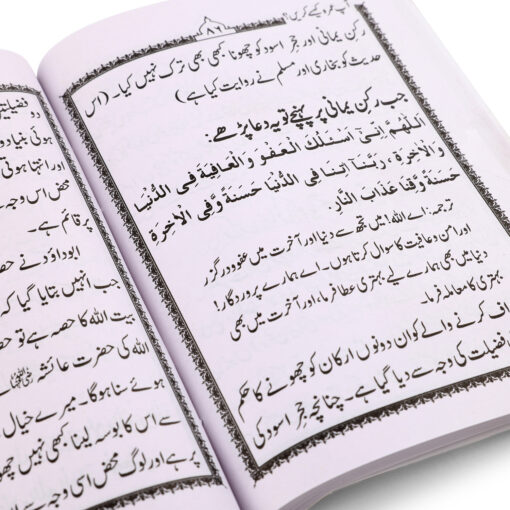 آپ عمرہ کیسے کریں؟
۸۶
رکن یمانی اور حجر اسود کو چھونا کبھی بھی ترک نہیں کیا۔ (اس
حدیث کو بخاری اور مسلم نے روایت کیا ہے)
جب رکن یمانی پر پہنچے تو یہ دعا پڑھے:
اَللّٰهُمَّ اِنِّىْ اَسْئَلُكَ الْعَفْوَ وَ الْعَافِيَةَ فِى الدُّنْيَا
وَ الْاٰخِرَةِ، رَبَّنَا اٰتِنَا فِى الدُّنْيَا حَسَنَةً وَّ فِى الْاٰخِرَةِ
حَسَنَةً وَّ قِنَا عَذَابَ النَّارِ۔
ترجمہ: اے اللہ! میں تجھ سے دنیا اور آخرت میں عفو و درگزر
اور امن و عافیت کا سوال کرتا ہوں۔ اے ہمارے پروردگار!
دنیا میں بھی ہمارے لیے بہتری عطا فرما، اور آخرت میں بھی
بہتری کا معاملہ فرما۔
اف کرنے والے کو ان دونوں ارکان کو چھونے کا حکم
فضیلت کی وجہ سے دیا گیا ہے۔ چنانچہ حجر اسود کی
دو فضیلتیں
ہوئی بنیاد
اور انتہا ہوتی
محض اس وجہ
پر قائم ہے۔
ابوداؤد نے حضر
جب انہیں بتایا گیا کہ
بیت اللہ کا حصہ ہے تو حضر
اللہ کی حضرت عائشہ
ہوئے سنا ہوگا۔ میرے خیال
سے اس کا بوسہ لینا کبھی نہیں چھو
پر ہے اور لوگ محض اسی وجہ سے